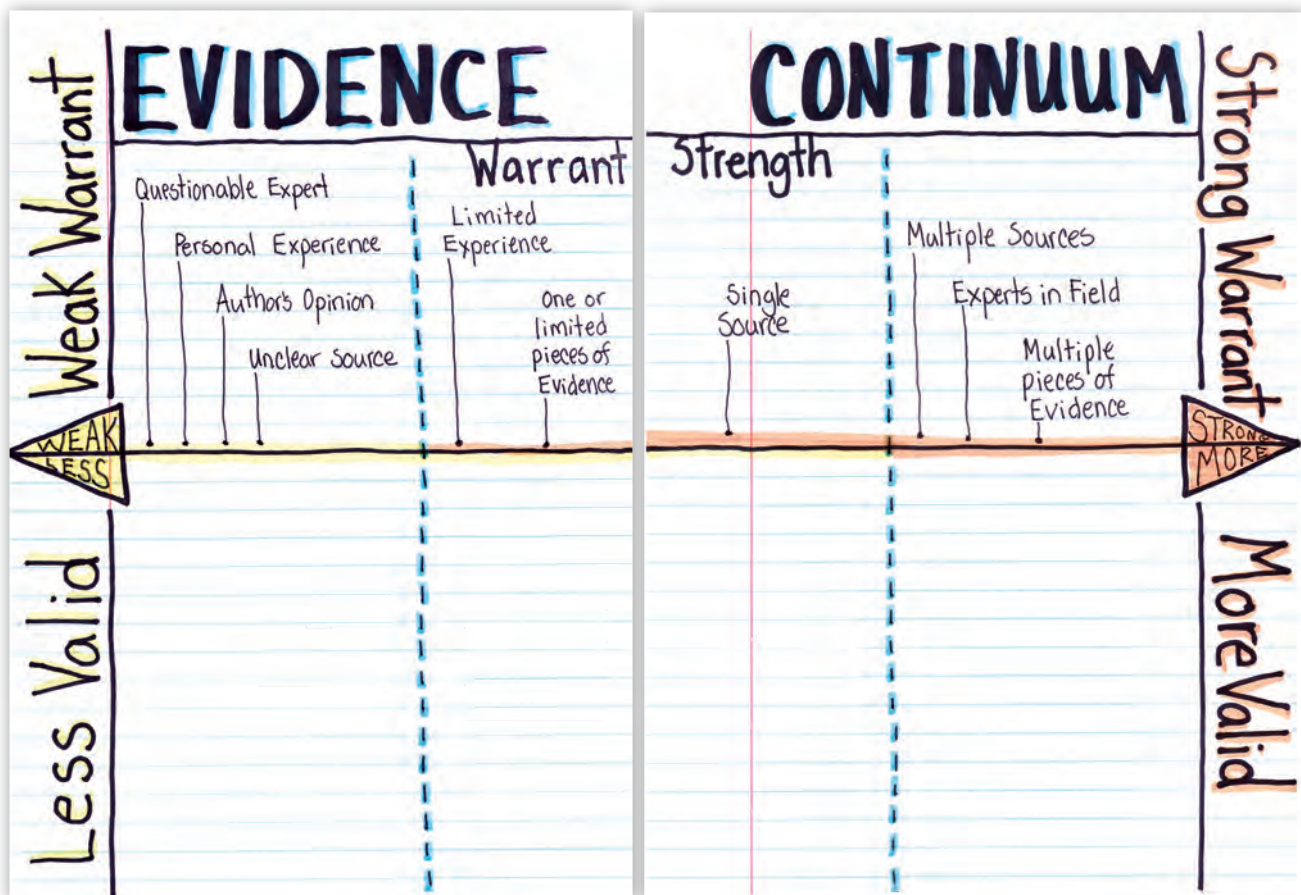 EVIDENCE CONTINUUM
Weak Warrant
Strong Warrant
Warrant Strength
Questionable Expert
Personal Experience
Author's Opinion
Unclear Source
Limited
Experience
One or
limited
pieces of
Evidence
Single
Source
Multiple Sources
Experts in Field
Multiple
pieces of
Evidence
WEAK
LESS
STRONG
MORE
Less Valid
More Valid